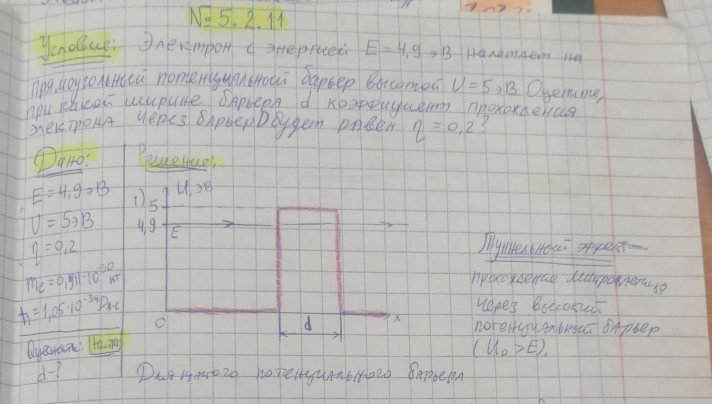 № 5.2.11
Условие: Электрон с энергией E = 4,9 эВ налетает на
прямоугольный потенциальный барьер высотой U = 5 эВ. Оцените,
при какой ширине барьера d коэффициент прохождения
электрона через барьер D будет равен η = 0,2?
Дано:
E = 4,9 эВ
U = 5 эВ
η = 0,2
mₑ = 0,911·10⁻³⁰ кг
ħ = 1,05·10⁻³⁴ Дж·с
Оценить:
d - ?
Решение:
1)
U, эВ
5
4,9
E
0
d
x
Туннельный эффект
прохождение микрочастиц
через высокий
потенциальный барьер
(U₀ > E).
потенциального барьера